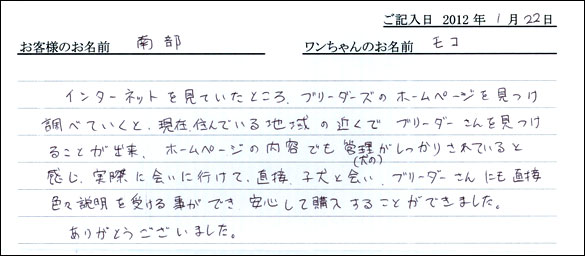 ご記入日 2012年 1月 22日
お客様のお名前 南部 ワンちゃんのお名前 モコ
インターネットを見ていたところ、ブリーダーズのホームページを見つけ
調べていくと、現在、住んでいる地域の近くでブリーダーさんを見つけ
ることが出来、ホームページの内容でも管理がしっかりされていると
(犬の)
感じ、実際に会いに行けて、直接、子犬と会い、ブリーダーさんにも直接
色々説明を受ける事ができ安心して購入することができました。
ありがとうございました。